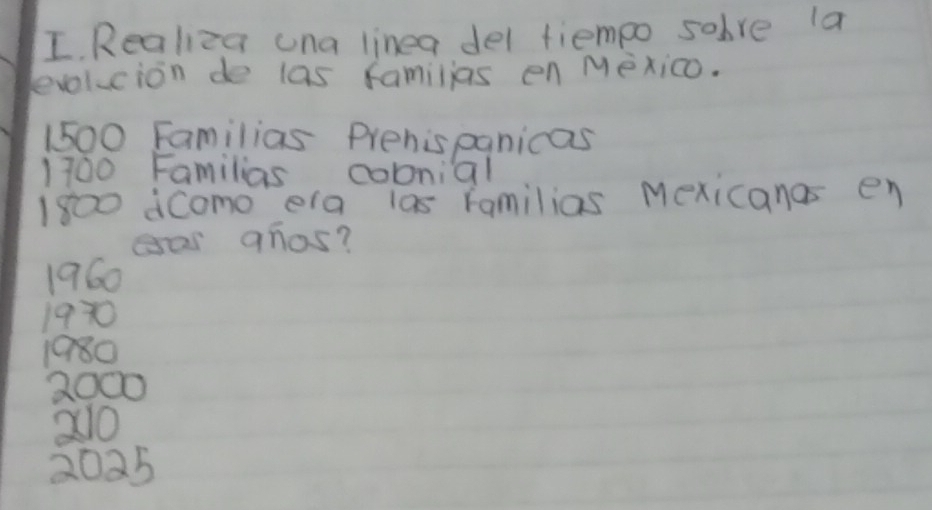 I. Realiza una linea del tiempo sobre la
evolución de las familias en México.
1500 Familias Prehispanicas
1700 Familias colonial
1800 ¿Como era las familias Mexicanas en
esos años?
1960
1970
1980
2000
2010
2025